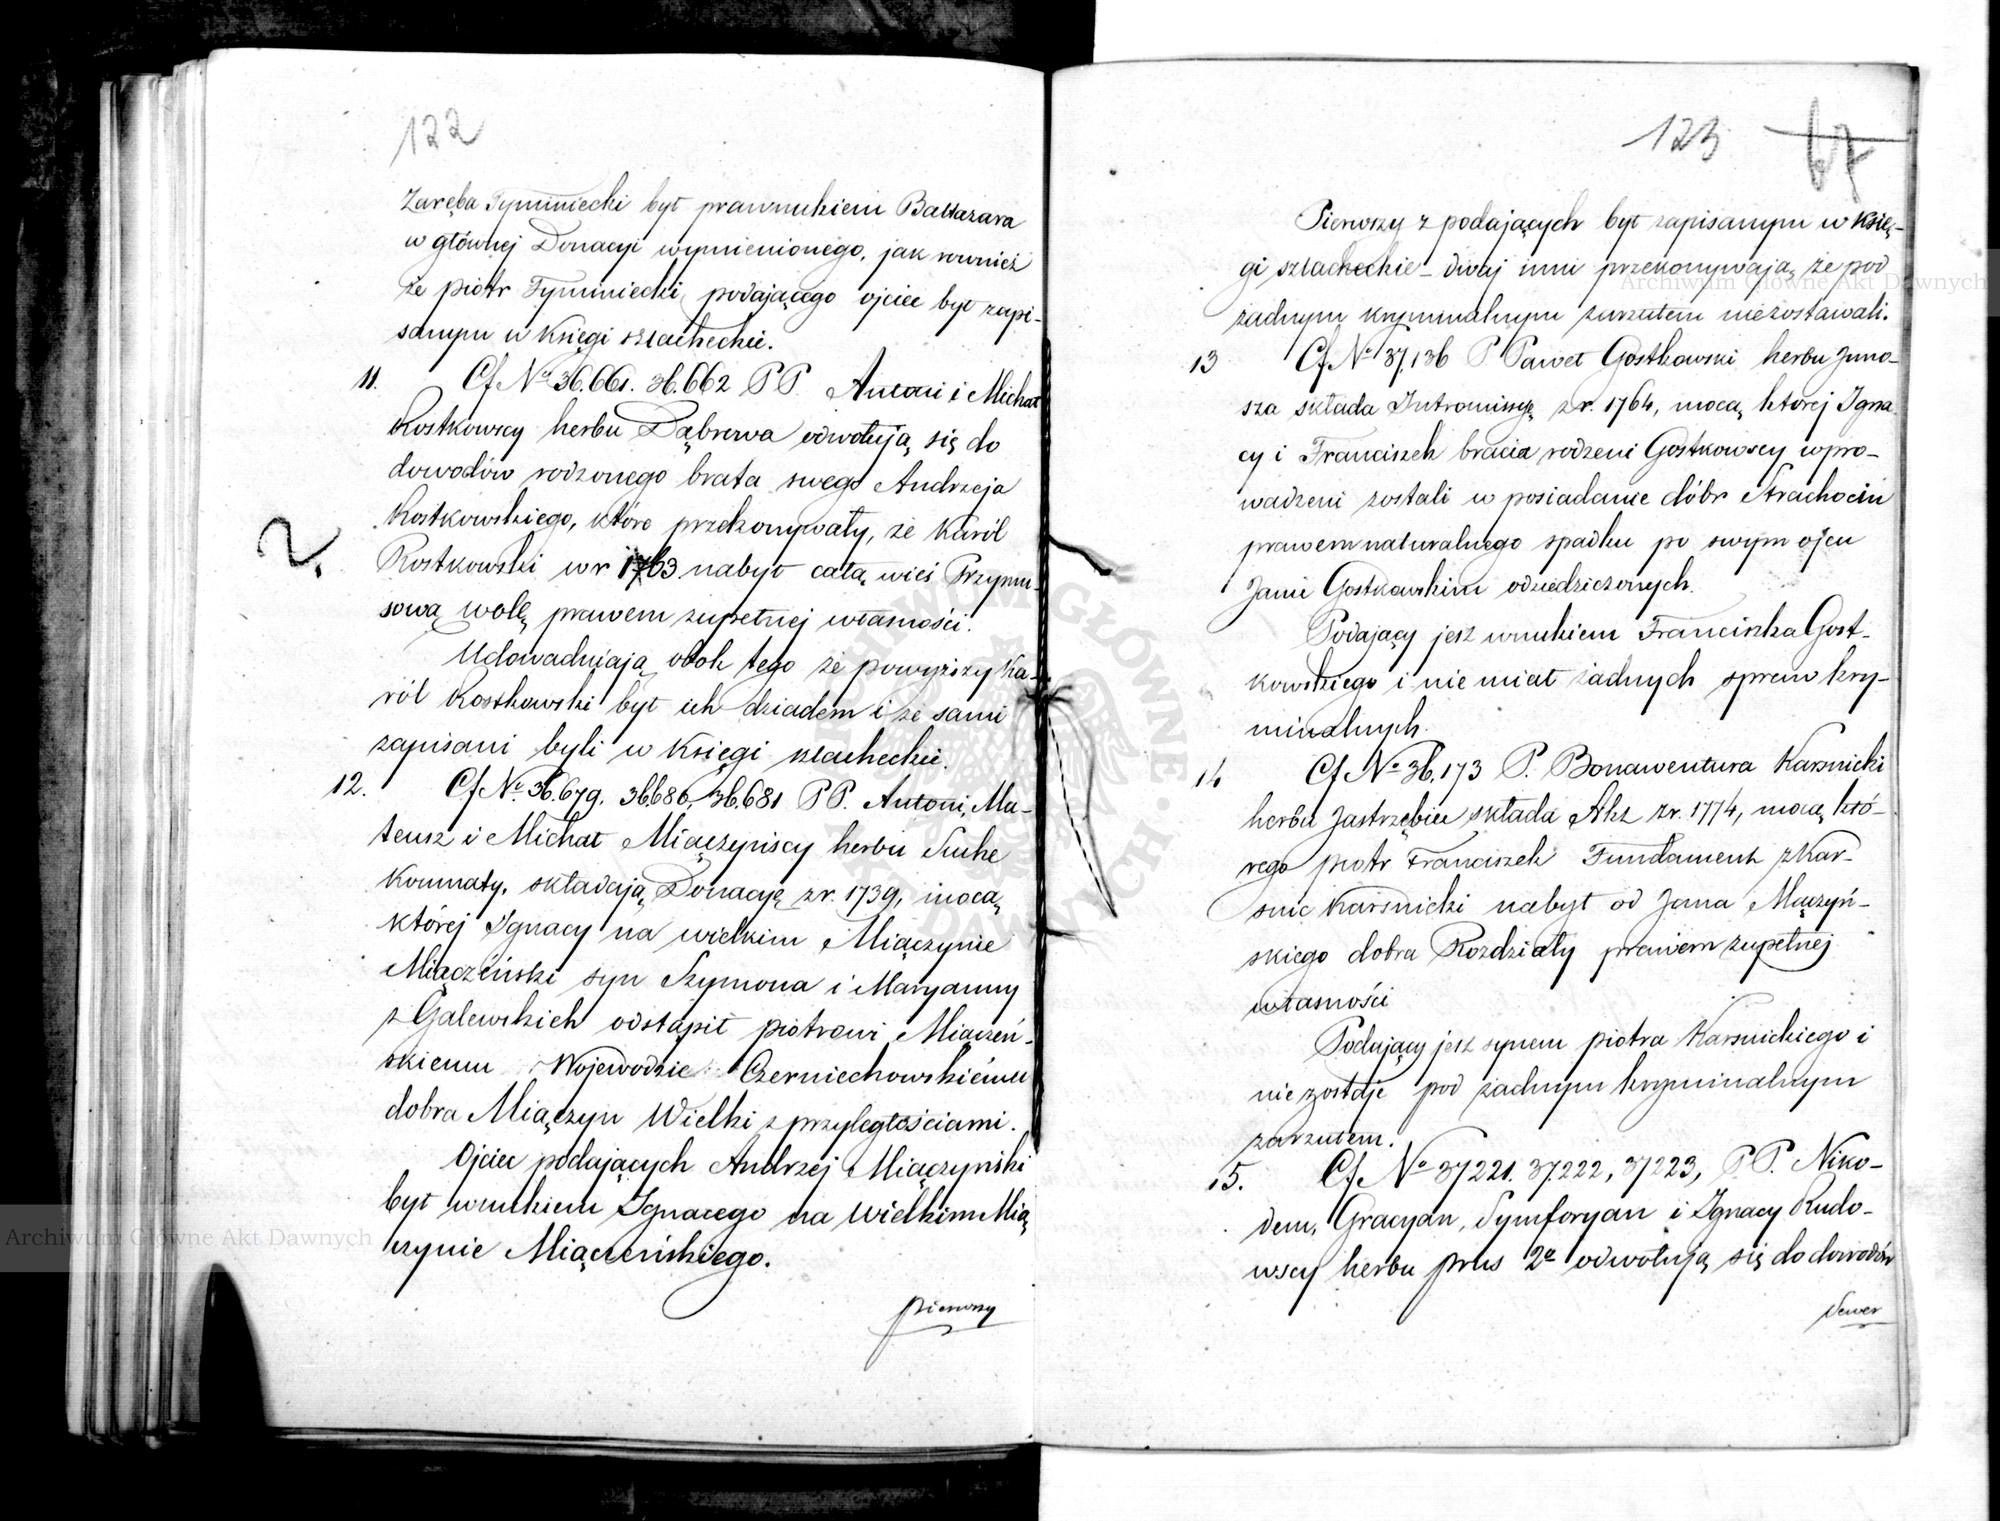 122
Zaręba Tyminiecki był prawnukiem Baltazara
w głównej Donacyi wymienionego, jak rownież
że piotr Tyminiecki, podającego ojciec był zapi-
sanym w Księgi szlacheckie.
11. Cf Nº 36.661. 36.662 PP. Antoni i Michał
Rostkowscy herbu Dąbrowa odwołują się do
dowodów rodzonego brata swego Andrzeja
Rostkowskiego, które przekonywały, że Karól
Rostkowski w r 1763 nabył całą wieś Przymu-
sową wolę prawem zupełnej własności.
2.
Udowadniają obok tego że powyższy Ka-
ról Rostkowski był ich dziadem i że sami
zapisani byli w Księgi szlacheckie.
12. Cf Nº 36.679. 36680. 36.681 PP. Antoni, Ma-
teusz i Michał Miączyńscy herbu Suche
Komnaty, składają Donacyę z r. 1739, mocą
której Ignacy na wielkim Miączynie
Miączeński syn Szymona i Maryanny
z Galewskich odstąpił piotrowi Miączeń-
skiemu Wojewodzie Czerniechowskiemu
dobra Miączyn Wielki z przyległościami.
Ojciec podających Andrzej Miączyński
był wnukiem Ignacego na Wielkim Mią
czynie Miączeńskiego.
pierwszy
123 67
Pierwszy z podających był zapisanym w Księ-
gi szlacheckie - dwaj inni przekonywają że pod
żadnym kryminalnym zarzutem niezostawali.
13 Cf Nº 37,136 P. Paweł Gostkowski herbu Juno-
sza składa Intromissyę z r. 1764, mocą ktorej Igna
cy i Franciszek bracia rodzeni Gostkowscy wpro-
wadzeni zostali w posiadanie dóbr Strachocin
prawem naturalnego spadku po swym ojcu
Janie Gostkowskim odziedziczonych.
Podający jest wnukiem Franciszka Gost-
kowskiego i nie miał żadnych spraw kry-
minalnych.
14 Cf Nº 36,173 P. Bonawentura Karsnicki
herbu Jastrzębiec składa Akt z r. 1774, mocą któ-
rego piotr Franciszek Fundament z Kar-
snic Karsnicki nabył od Jana Mączyń-
skiego dobra Rozdziały prawem zupełnej
własności
Podający jest synem piotra Karsnickiego i
nie zostaje pod żadnym kryminalnym
zarzutem.
15. Cf Nº 37221. 37.222, 37223, PP. Niko-
dem, Gracyan, Symforyan i Ignacy Rudo-
wscy herbu prus 2º odwołują się do dowodów
Sewer
Archiwum Główne Akt Dawnych
Archiwum Główne Akt Dawnych